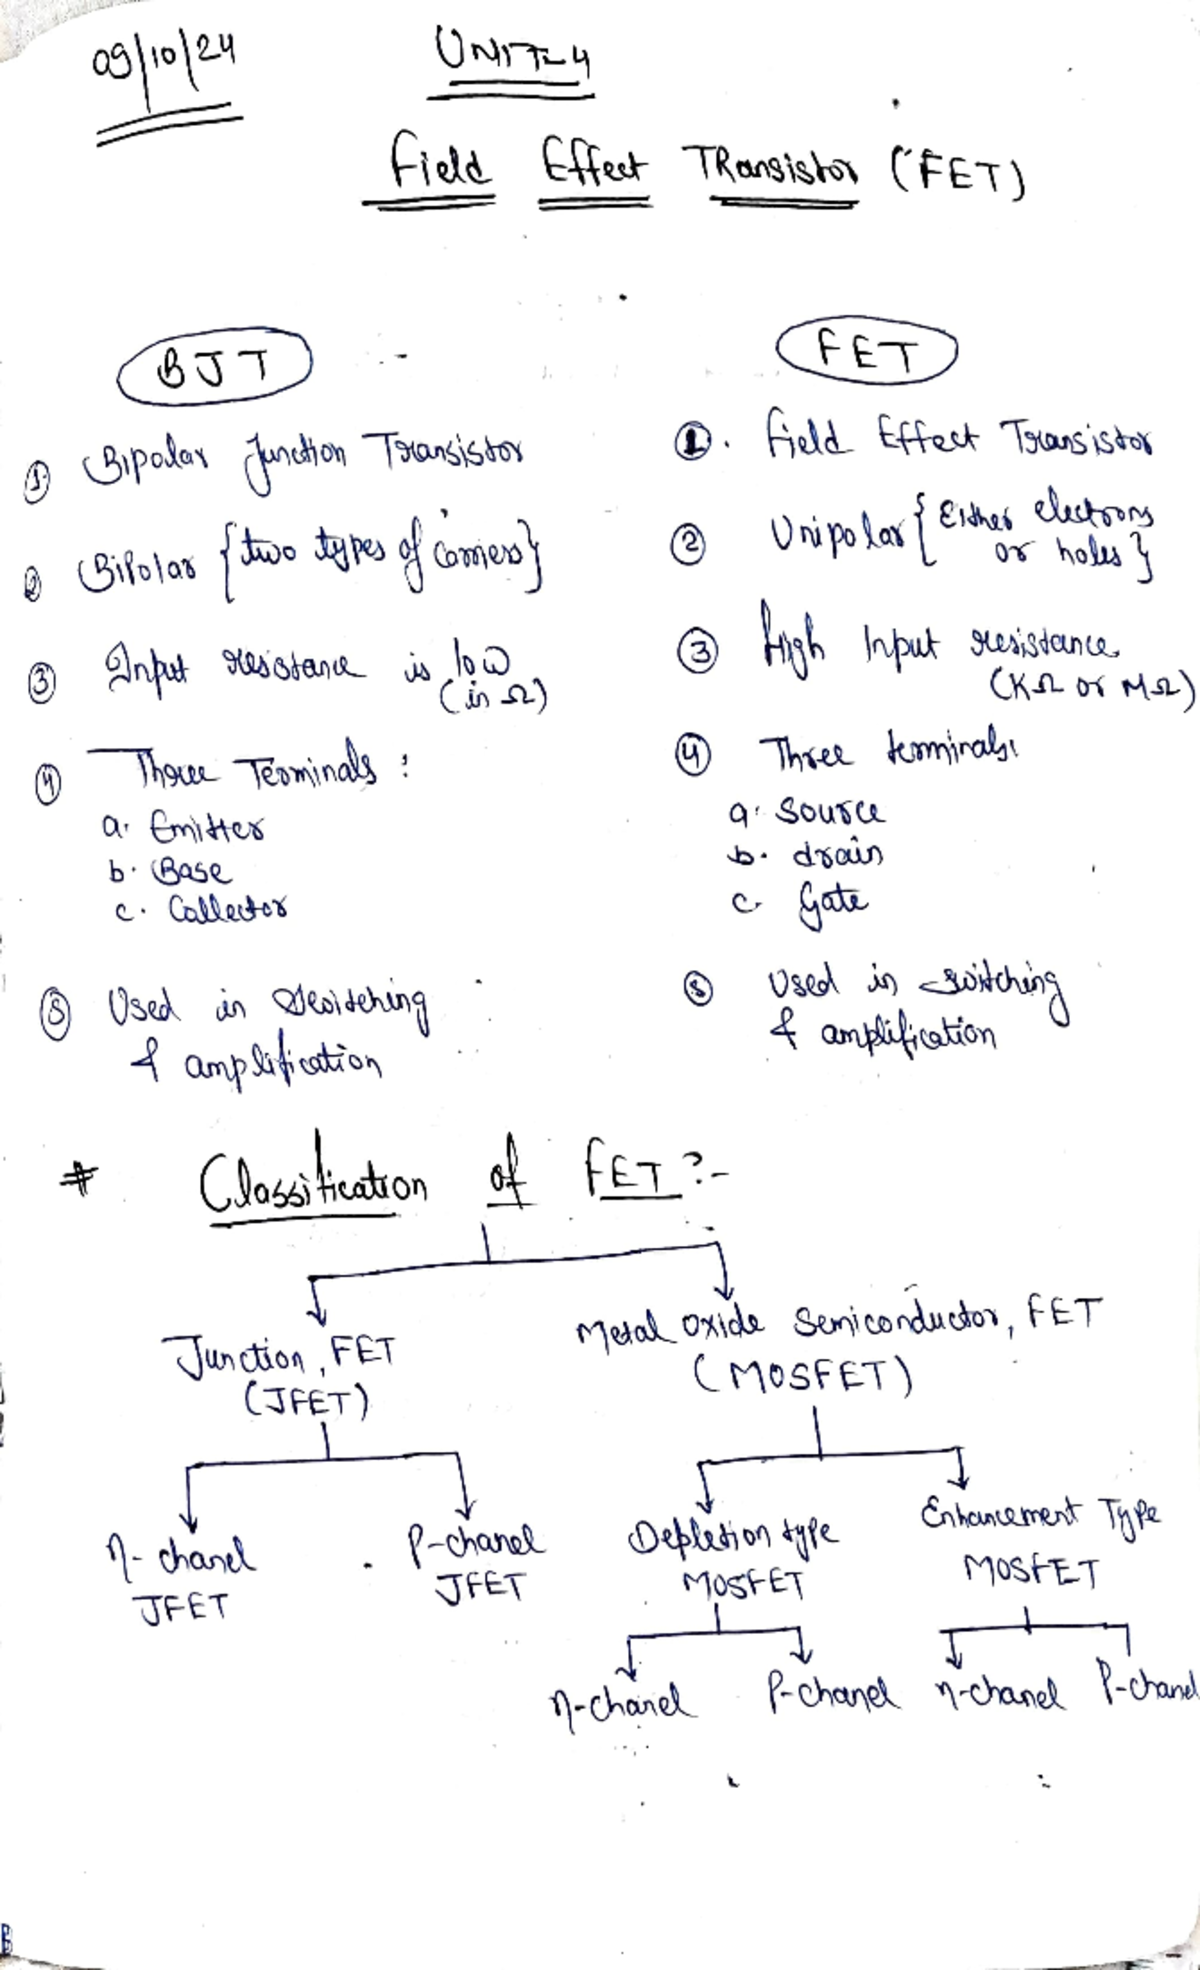 09/10/24
UNIT-4
Field Effect TRansistor (FET)
BJT
① Bipolar Junction Transistor
② Bipolar {two types of carriers}
③ Input resistance is low
(in Ω)
④ Three Terminals :
a. Emitter
b. Base
c. Collector
⑤ Used in switching
& amplification
FET
①. Field Effect Transistor
② Unipolar {Either electrons
or holes}
③ High Input resistance
(KΩ or MΩ)
④ Three terminals:
a. Source
b. drain
c. Gate
⑤ Used in switching
& amplification
# Classification of FET :-
Junction, FET
(JFET)
Metal Oxide Semiconductor, FET
(MOSFET)
n-chanel
JFET
P-chanel
JFET
Depletion type
MOSFET
Enhancement Type
MOSFET
n-chanel
P-chanel
n-chanel
P-chanel